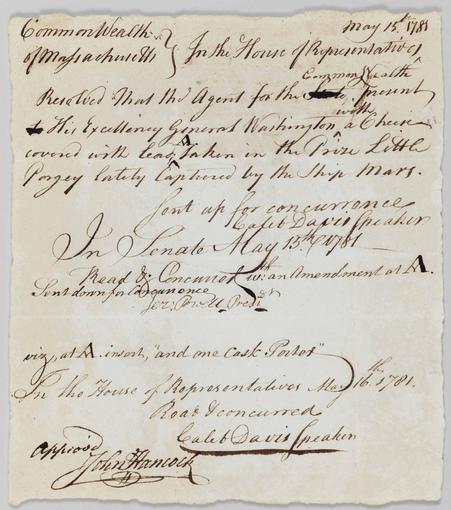 CommonWealth
of Massachusetts } May 15th 1781
In the House of Representatives
Common Wealth
Resolved That the Agent for the State, present
with
to His Excellency General Washington ^ a Cheese
covered with lead A Taken in the Prize Little
Porgey lately Captured by the Ship Mars.
Sent up for concurrence
Caleb Davis Speaker
In Senate May 15th 1781
Read & Concurred wth: an Amendment at A.
Sent down for Concurrence
Jer: Powell Presidt
viz, at A. insert, "and one Cask Porter"
In the House of Representatives May 16th. 1781.
Read & concurred
Caleb Davis Speaker
Approv'd
John Hancock